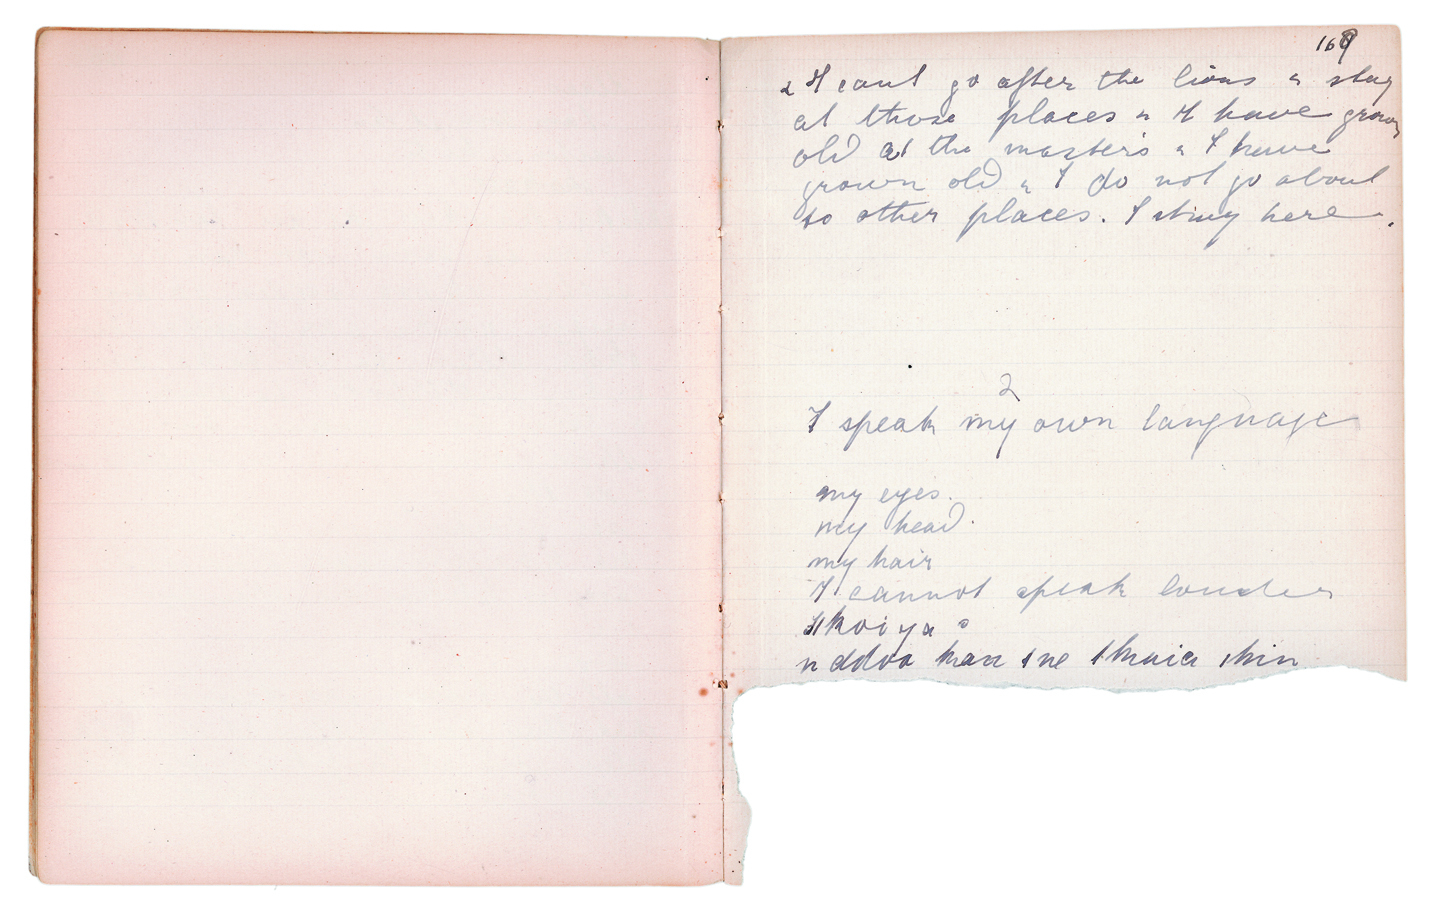 169
& I cant go after the lions & stay
at those places & I have grown
old at the master's & I have
grown old & I do not go about
to other places. I stay here.
2
I speak my own language
my eyes.
my head.
my hair
I cannot speak louder